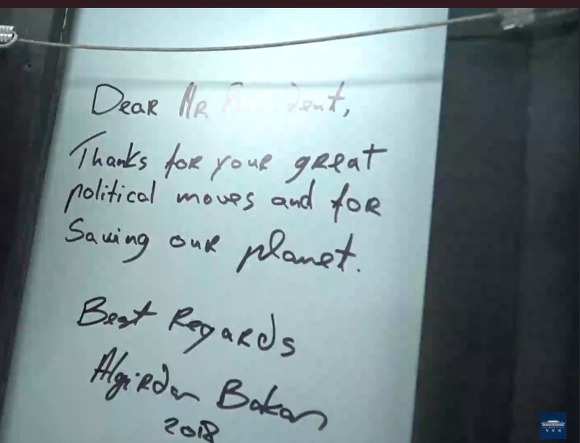 Dear Mr President,
Thanks for your great
political moves and for
Saving our planet.
Best Regards
Algirdas Bakas
2018